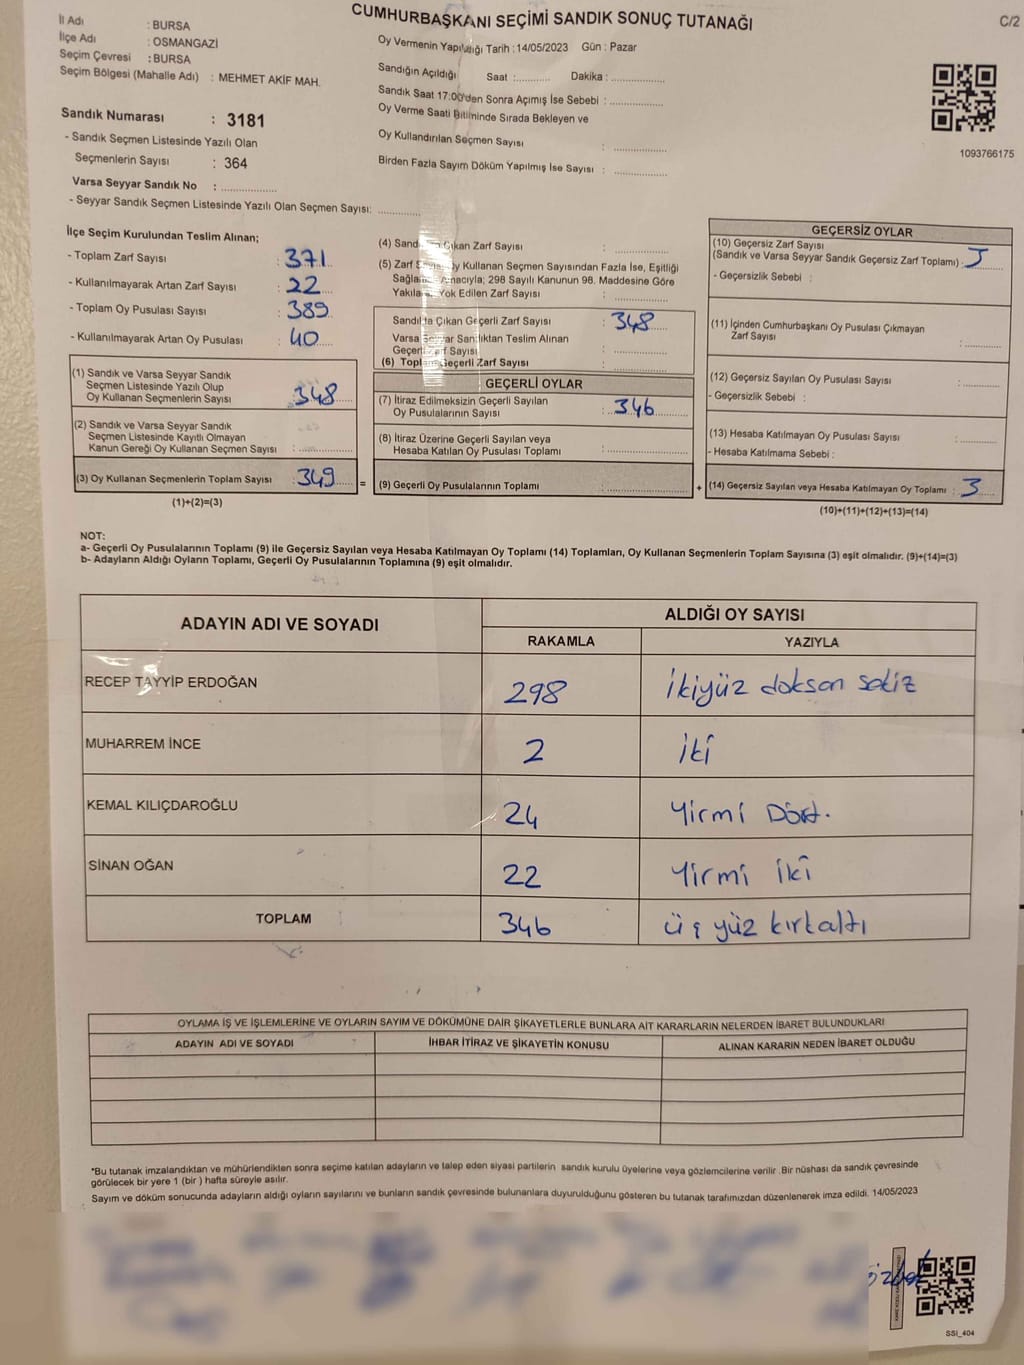 CUMHURBAŞKANI SEÇİMİ SANDIK SONUÇ TUTANAĞI
C/2
İl Adı : BURSA
İlçe Adı : OSMANGAZİ
Seçim Çevresi : BURSA
Seçim Bölgesi (Mahalle Adı) : MEHMET AKİF MAH.
Sandık Numarası : 3181
- Sandık Seçmen Listesinde Yazılı Olan
Seçmenlerin Sayısı : 364
Varsa Seyyar Sandık No : ..............
- Seyyar Sandık Seçmen Listesinde Yazılı Olan Seçmen Sayısı: ............
Oy Vermenin Yapıldığı Tarih : 14/05/2023 Gün : Pazar
Sandığın Açıldığı Saat :........... Dakika : ................
Sandık Saat 17:00'den Sonra Açımış İse Sebebi : ................
Oy Verme Saati Bitiminde Sırada Bekleyen ve
Oy Kullandırılan Seçmen Sayısı : ................
Birden Fazla Sayım Döküm Yapılmış İse Sayısı : ................
1093766175
İlçe Seçim Kurulundan Teslim Alınan;
- Toplam Zarf Sayısı : 371
- Kullanılmayarak Artan Zarf Sayısı : 22
- Toplam Oy Pusulası Sayısı : 389
- Kullanılmayarak Artan Oy Pusulası : 40
(1) Sandık ve Varsa Seyyar Sandık
Seçmen Listesinde Yazılı Olup
Oy Kullanan Seçmenlerin Sayısı : 348
(2) Sandık ve Varsa Seyyar Sandık
Seçmen Listesinde Kayıtlı Olmayan
Kanun Gereği Oy Kullanan Seçmen Sayısı : ................
(3) Oy Kullanan Seçmenlerin Toplam Sayısı : 349
(1)+(2)=(3)
=
(4) Sandıktan Çıkan Zarf Sayısı : ................
(5) Zarf Sayısı Oy Kullanan Seçmen Sayısından Fazla İse, Eşitliği
Sağlamak Amacıyla; 298 Sayılı Kanunun 98. Maddesine Göre
Yakılarak Yok Edilen Zarf Sayısı : ................
Sandıkta Çıkan Geçerli Zarf Sayısı : 348
Varsa Seyyar Sandıktan Teslim Alınan
Geçerli Zarf Sayısı : ................
(6) Toplam Geçerli Zarf Sayısı : ................
GEÇERLİ OYLAR
(7) İtiraz Edilmeksizin Geçerli Sayılan
Oy Pusulalarının Sayısı : 346
(8) İtiraz Üzerine Geçerli Sayılan veya
Hesaba Katılan Oy Pusulası Toplamı : ................
(9) Geçerli Oy Pusulalarının Toplamı : ................
+
GEÇERSİZ OYLAR
(10) Geçersiz Zarf Sayısı
(Sandık ve Varsa Seyyar Sandık Geçersiz Zarf Toplamı) :
- Geçersizlik Sebebi :
(11) İçinden Cumhurbaşkanı Oy Pusulası Çıkmayan
Zarf Sayısı : ................
(12) Geçersiz Sayılan Oy Pusulası Sayısı : ................
- Geçersizlik Sebebi :
(13) Hesaba Katılmayan Oy Pusulası Sayısı : ................
- Hesaba Katılmama Sebebi :
(14) Geçersiz Sayılan veya Hesaba Katılmayan Oy Toplamı : 3
(10)+(11)+(12)+(13)=(14)
NOT:
a- Geçerli Oy Pusulalarının Toplamı (9) ile Geçersiz Sayılan veya Hesaba Katılmayan Oy Toplamı (14) Toplamları, Oy Kullanan Seçmenlerin Toplam Sayısına (3) eşit olmalıdır. (9)+(14)=(3)
b- Adayların Aldığı Oyların Toplamı, Geçerli Oy Pusulalarının Toplamına (9) eşit olmalıdır.
ADAYIN ADI VE SOYADI
ALDIĞI OY SAYISI
RAKAMLA YAZIYLA
RECEP TAYYİP ERDOĞAN 298 İkiyüz doksan sekiz
MUHARREM İNCE 2 İki
KEMAL KILIÇDAROĞLU 24 Yirmi Dört.
SİNAN OĞAN 22 Yirmi İki
TOPLAM 346 üç yüz kırkaltı
OYLAMA İŞ VE İŞLEMLERİNE VE OYLARIN SAYIM VE DÖKÜMÜNE DAİR ŞİKAYETLERLE BUNLARA AİT KARARLARIN NELERDEN İBARET BULUNDUKLARI
ADAYIN ADI VE SOYADI İHBAR İTİRAZ VE ŞİKAYETİN KONUSU ALINAN KARARIN NEDEN İBARET OLDUĞU
*Bu tutanak imzalandıktan ve mühürlendikten sonra seçime katılan adayların ve talep eden siyasi partilerin sandık kurulu üyelerine veya gözlemcilerine verilir .Bir nüshası da sandık çevresinde
görülecek bir yere 1 (bir ) hafta süreyle asılır.
Sayım ve döküm sonucunda adayların aldığı oyların sayılarını ve bunların sandık çevresinde bulunanlara duyurulduğunu gösteren bu tutanak tarafımızdan düzenlenerek imza edildi. 14/05/2023
SSİ_404